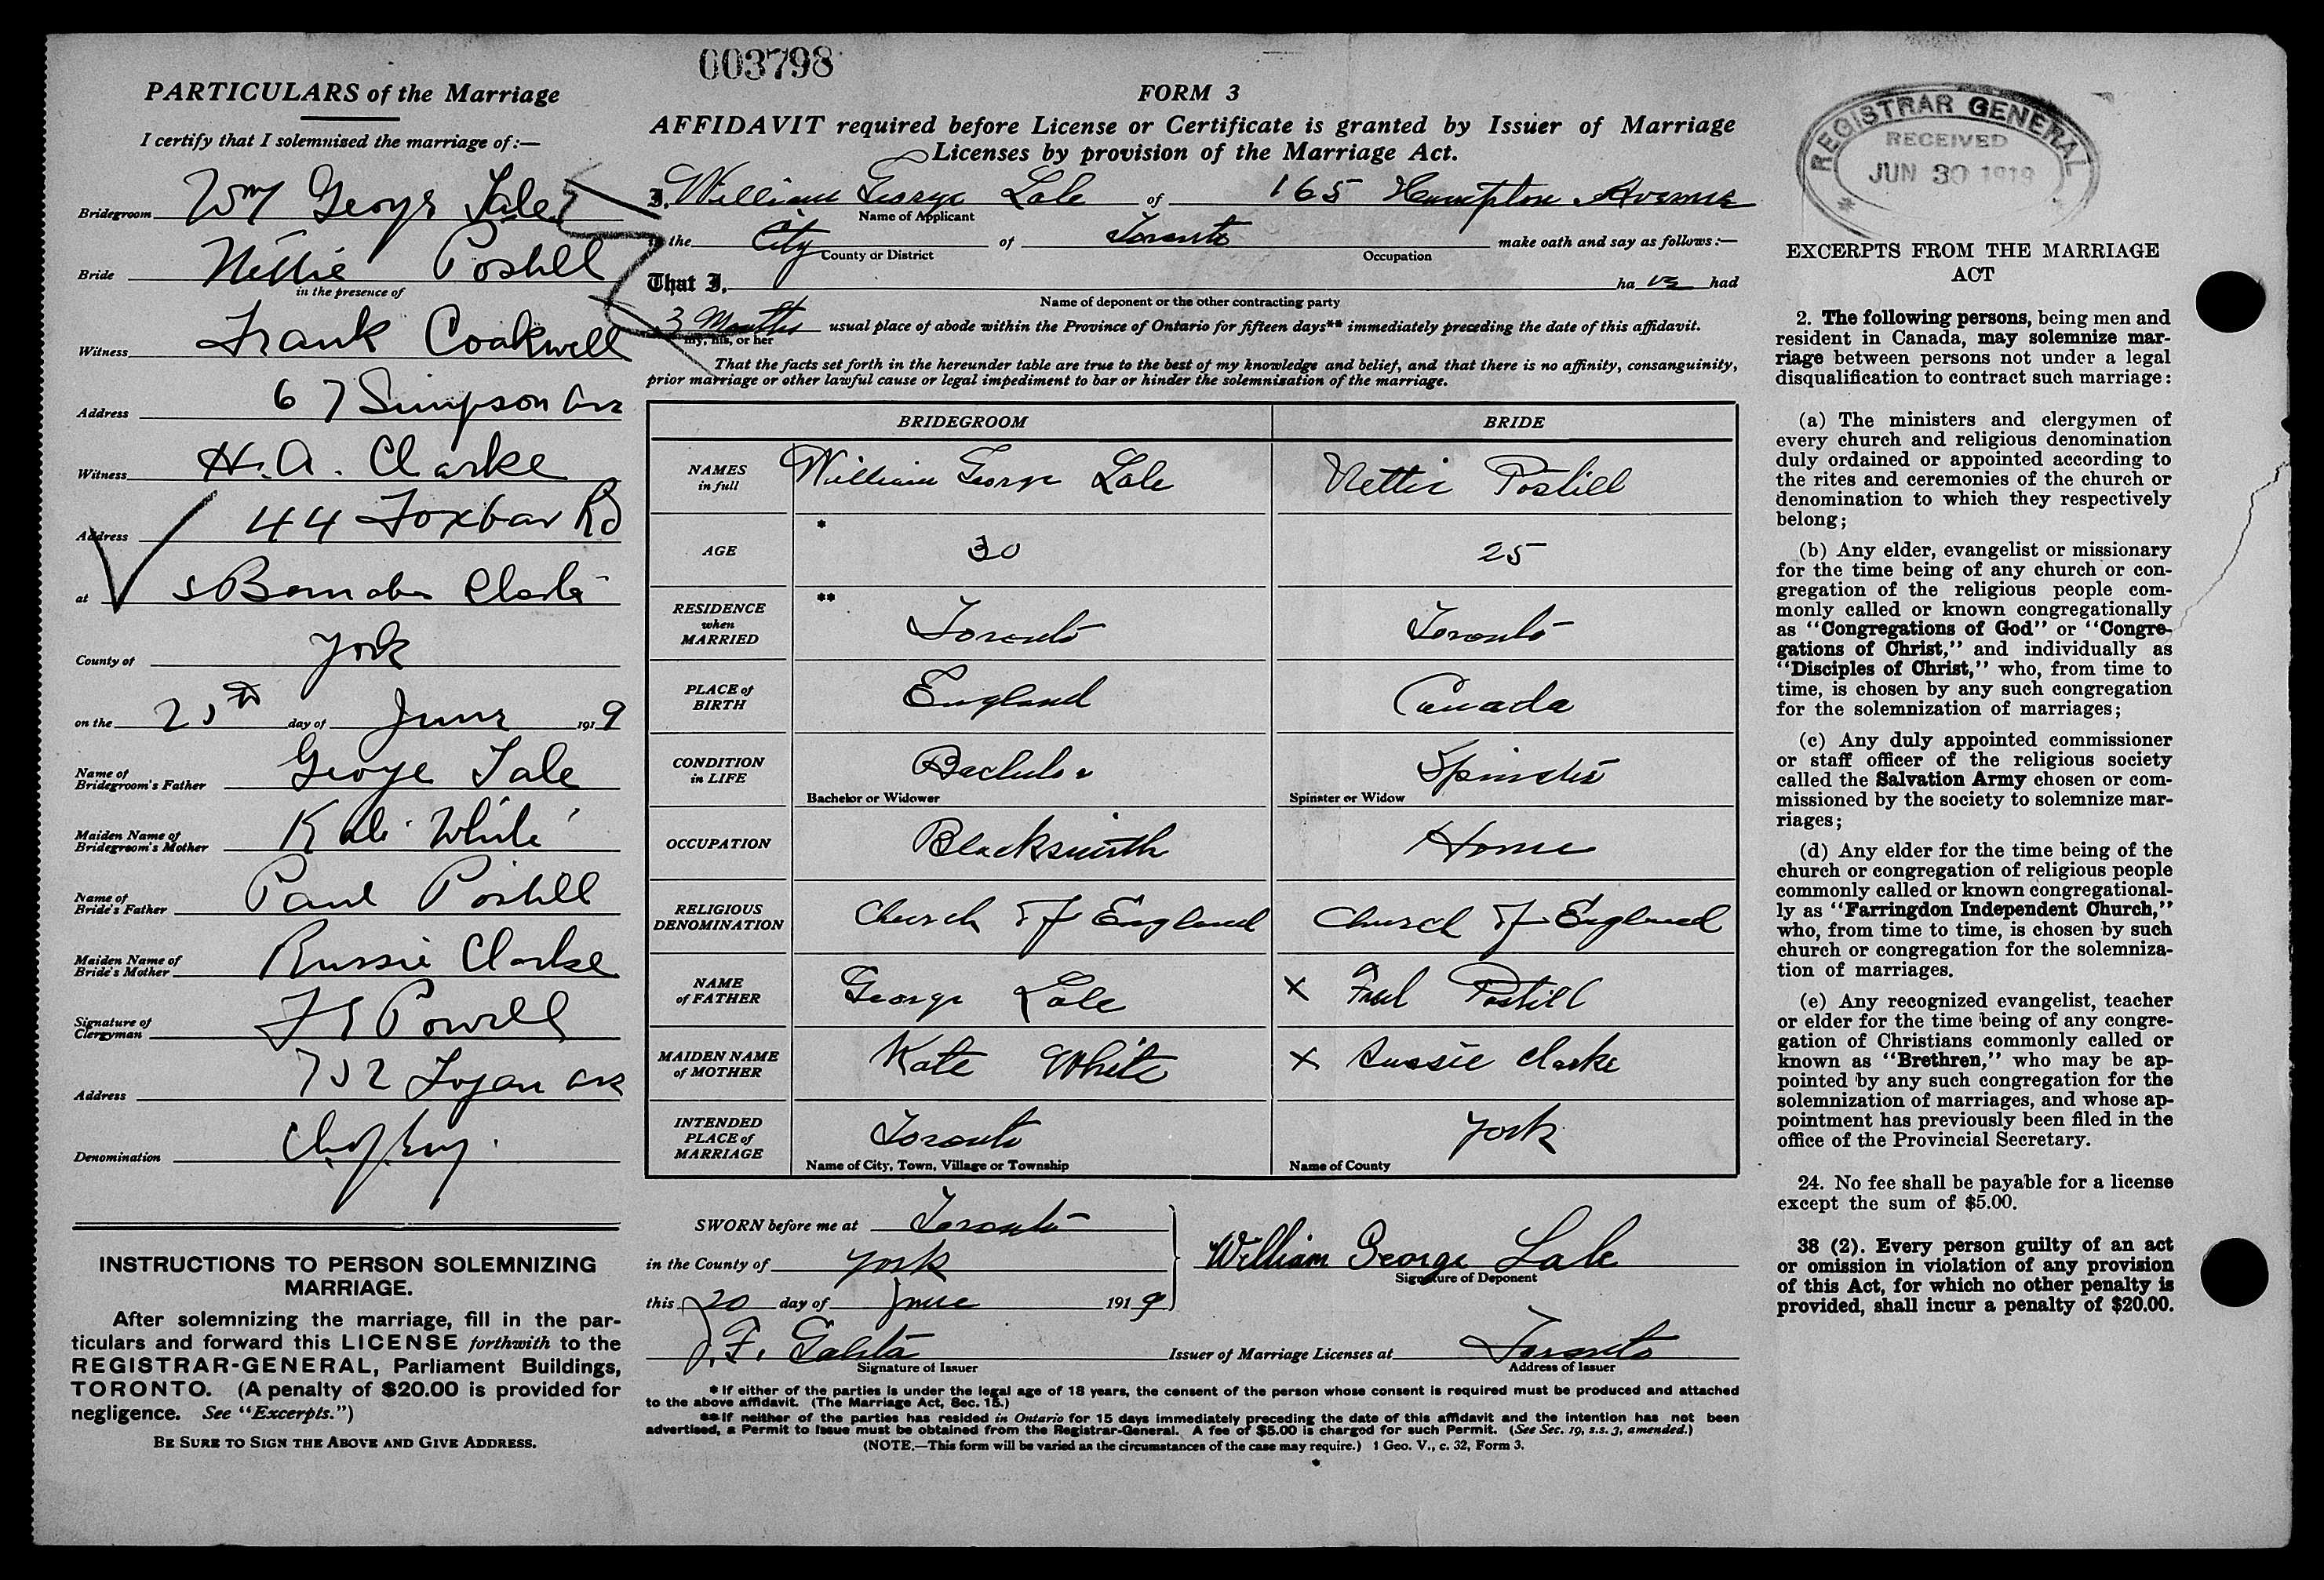 003798
PARTICULARS of the Marriage
I certify that I solemnized the marriage of:—
Bridegroom Wm George Lale
Bride Nettie Postill
in the presence of
Witness Frank Coakwell
Address 67 Simpson Ave
Witness H. A. Clarke
Address 44 Foxbar Rd
at
County of York
on the day of June 1919
Name of
Bridegroom's Father George Lale
Maiden Name of
Bridegroom's Mother Kate White
Name of
Bride's Father Postill
Maiden Name of
Bride's Mother Clarke
Signature of
Clergyman Powell
Address Logan Ave
Denomination
INSTRUCTIONS TO PERSON SOLEMNIZING
MARRIAGE.
After solemnizing the marriage, fill in the par-
ticulars and forward this LICENSE forthwith to the
REGISTRAR-GENERAL, Parliament Buildings,
TORONTO. (A penalty of $20.00 is provided for
negligence. See "Excerpts.")
BE SURE TO SIGN THE ABOVE AND GIVE ADDRESS.
FORM 3
AFFIDAVIT required before License or Certificate is granted by Issuer of Marriage
Licenses by provision of the Marriage Act.
I, William George Lale of 165 Hampton Avenue
Name of Applicant
the City of Toronto make oath and say as follows:—
County or District Occupation
That I, have had
Name of deponent or the other contracting party
3 Months usual place of abode within the Province of Ontario for fifteen days** immediately preceding the date of this affidavit.
my, his, or her
That the facts set forth in the hereunder table are true to the best of my knowledge and belief, and that there is no affinity, consanguinity,
prior marriage or other lawful cause or legal impediment to bar or hinder the solemnization of the marriage.
BRIDEGROOM BRIDE
NAMES
in full William George Lale Nettie Postill
AGE * 30 25
RESIDENCE
when
MARRIED ** Toronto Toronto
PLACE of
BIRTH England Canada
CONDITION
in LIFE Bachelor Spinster
Bachelor or Widower Spinster or Widow
OCCUPATION Blacksmith Home
RELIGIOUS
DENOMINATION Church of England Church of England
NAME
of FATHER George Lale x Postill
MAIDEN NAME
of MOTHER Kate White x Sussie Clarke
INTENDED
PLACE of
MARRIAGE Toronto York
Name of City, Town, Village or Township Name of County
SWORN before me at Toronto
in the County of York
this 20 day of June 1919
William George Lale
Signature of Deponent
J. F.
Signature of Issuer
Issuer of Marriage Licenses at Toronto
Address of Issuer
* If either of the parties is under the legal age of 18 years, the consent of the person whose consent is required must be produced and attached
to the above affidavit. (The Marriage Act, Sec. 15.)
**If neither of the parties has resided in Ontario for 15 days immediately preceding the date of this affidavit and the intention has not been
advertised, a Permit to Issue must be obtained from the Registrar-General. A fee of $5.00 is charged for such Permit. (See Sec. 19, s.s. 3, amended.)
(NOTE.—This form will be varied as the circumstances of the case may require.) 1 Geo. V., c. 32, Form 3.
REGISTRAR GENERAL
RECEIVED
JUN 30 1919
EXCERPTS FROM THE MARRIAGE
ACT
2. The following persons, being men and
resident in Canada, may solemnize mar-
riage between persons not under a legal
disqualification to contract such marriage:
(a) The ministers and clergymen of
every church and religious denomination
duly ordained or appointed according to
the rites and ceremonies of the church or
denomination to which they respectively
belong;
(b) Any elder, evangelist or missionary
for the time being of any church or con-
gregation of the religious people com-
monly called or known congregationally
as "Congregations of God" or "Congre-
gations of Christ," and individually as
"Disciples of Christ," who, from time to
time, is chosen by any such congregation
for the solemnization of marriages;
(c) Any duly appointed commissioner
or staff officer of the religious society
called the Salvation Army chosen or com-
missioned by the society to solemnize mar-
riages;
(d) Any elder for the time being of the
church or congregation of religious people
commonly called or known congregational-
ly as "Farringdon Independent Church,"
who, from time to time, is chosen by such
church or congregation for the solemniza-
tion of marriages.
(e) Any recognized evangelist, teacher
or elder for the time being of any congre-
gation of Christians commonly called or
known as "Brethren," who may be ap-
pointed by any such congregation for the
solemnization of marriages, and whose ap-
pointment has previously been filed in the
office of the Provincial Secretary.
24. No fee shall be payable for a license
except the sum of $5.00.
38 (2). Every person guilty of an act
or omission in violation of any provision
of this Act, for which no other penalty is
provided, shall incur a penalty of $20.00.